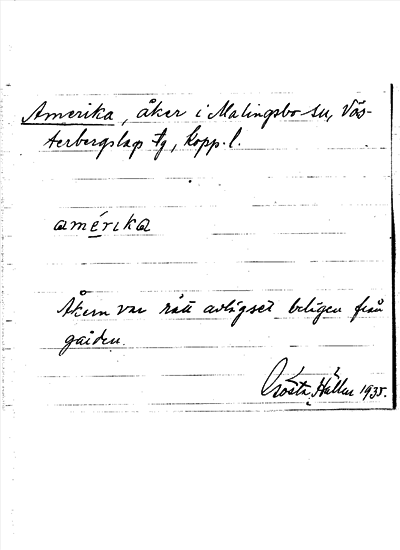 Amerika, åker i Malingsbo sn, Väs-
terbergslags tg, Kopp. l.
amérika
Åkern var rätt avlägset belägen från
gården.
Gösta Hallin 1935.